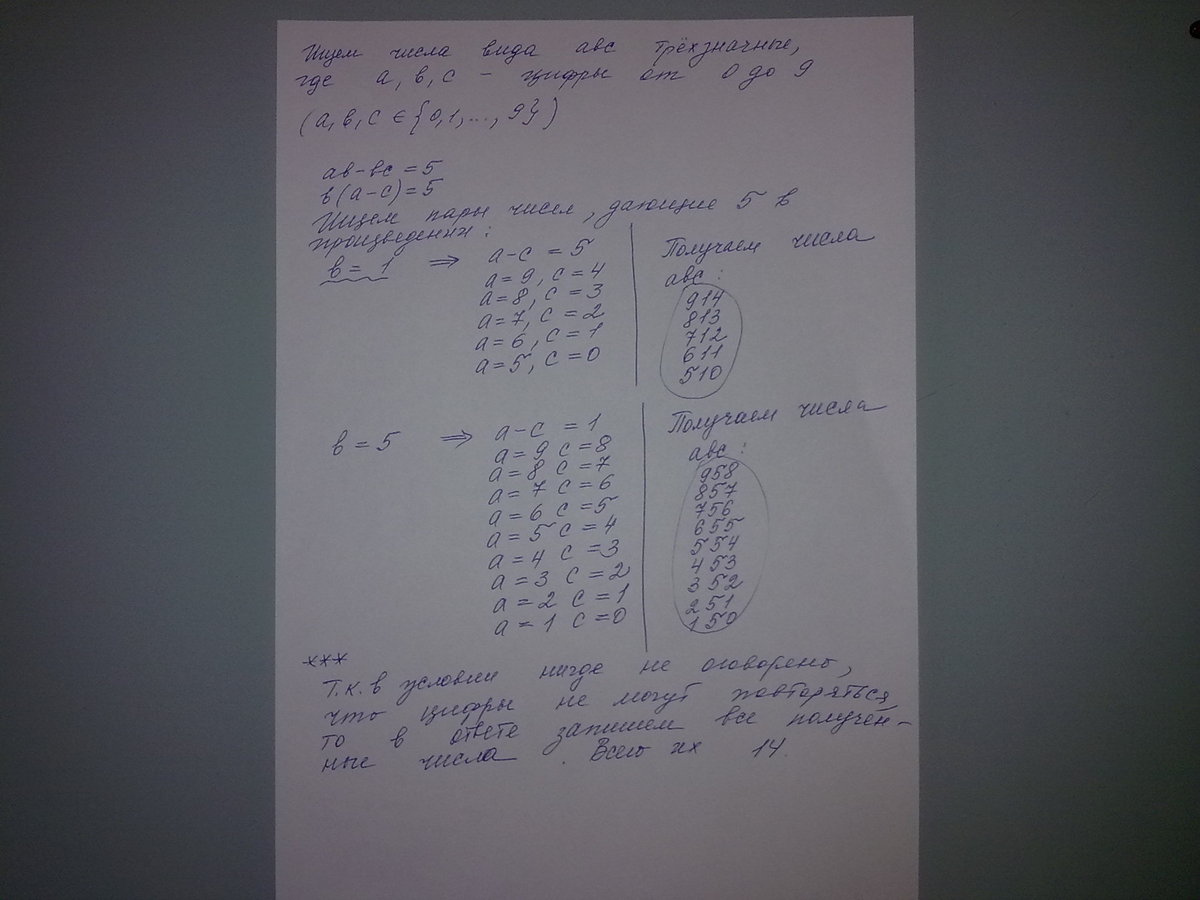 Ищем числа вида авс трёхзначные,
где а, в, с - цифры от 0 до 9
(а, в, с ∈ {0,1,..., 9})
ав-вс = 5
в(а-с)=5
Ищем пары чисел, дающие 5 в
произведении:
в = 1 ⇒ а-с = 5
а=9, с=4
а=8, с=3
а=7, с=2
а=6, с=1
а=5, с=0
Получаем числа
авс:
914
813
712
611
510
в = 5 ⇒ а-с = 1
а=9 с=8
а=8 с=7
а=7 с=6
а=6 с=5
а=5 с=4
а=4 с=3
а=3 с=2
а=2 с=1
а=1 с=0
Получаем числа
авс:
958
857
756
655
554
453
352
251
150
***
Т.к. в условии нигде не оговорено,
что цифры не могут повторяться,
то в ответе запишем все получен-
ные числа. Всего их 14.